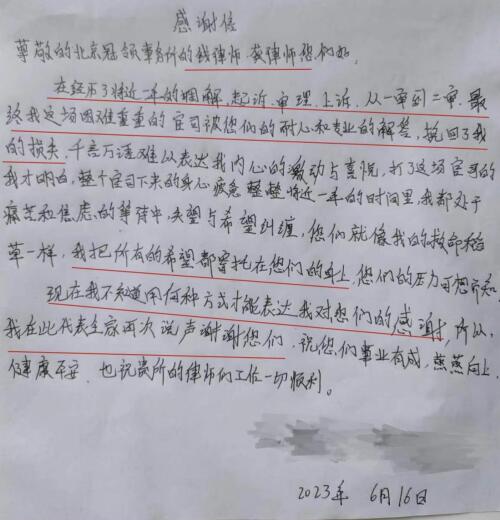 感谢信
尊敬的北京冠领事务所的钱律师、龚律师您们好,
在经历了将近一年的调解、起诉、审理、上诉、从一审到二审、最
终我这场困难重重的官司被您们的耐心和专业的解答,挽回了我
的损失,千言万语难以表达我内心的激动与喜悦,打了这场官司的
我才明白,整个官司下来的身心疲惫整整将近一年的时间里,我都处于
痛苦和焦虑的等待中,失望与希望纠缠,您们就像我的救命稻
草一样,我把所有的希望都寄托在您们的身上,您们的压力可想而知
现在我不知道用何种方式才能表达我对您们的感谢,所以,
我在此代表全家再次说声谢谢您们,祝您们事业有成,蒸蒸向上,
健康平安、也祝贵所的律师们工作一切顺利。
2023年 6月16日